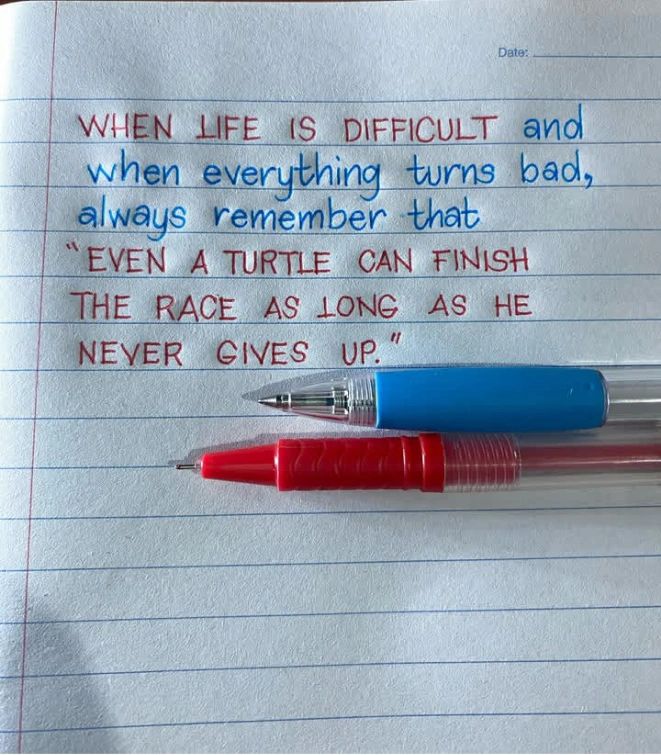 Date:
WHEN LIFE IS DIFFICULT and
when everything turns bad,
always remember that
"EVEN A TURTLE CAN FINISH
THE RACE AS LONG AS HE
NEVER GIVES UP."